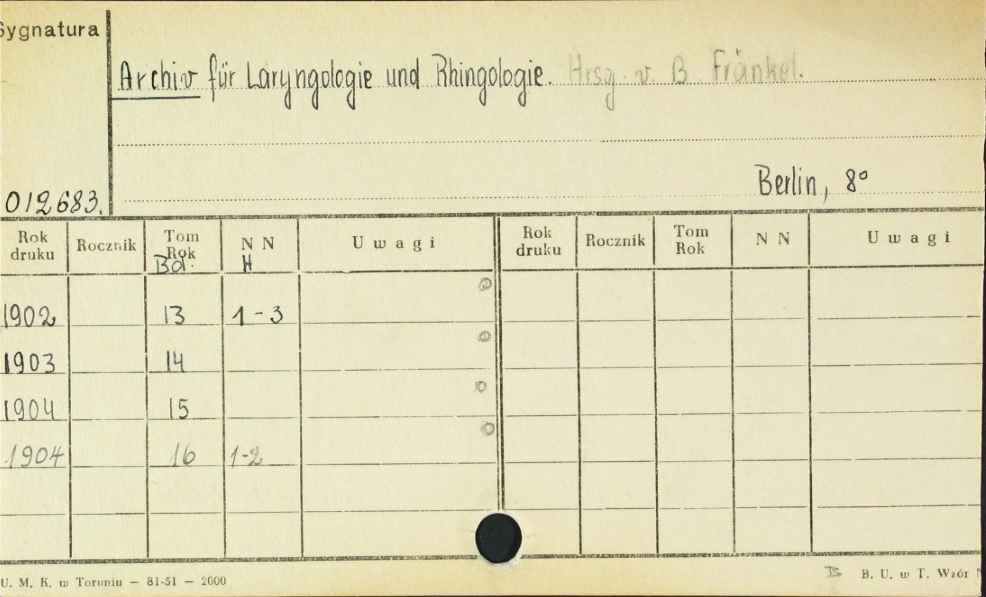 Sygnatura
Archiv für Laryngologie und Rhingologie. Hrsg. v. B. Fränkel.
Berlin, 8°
012683.
Rok druku Rocznik Tom Rok Bd. N N H Uwagi Rok druku Rocznik Tom Rok N N Uwagi
1902 13 1-3
1903 14
1904 15
1904 16 1-2
U. M. K. w Toruniu — 81-51 — 2600 B. U. w T. Wzór